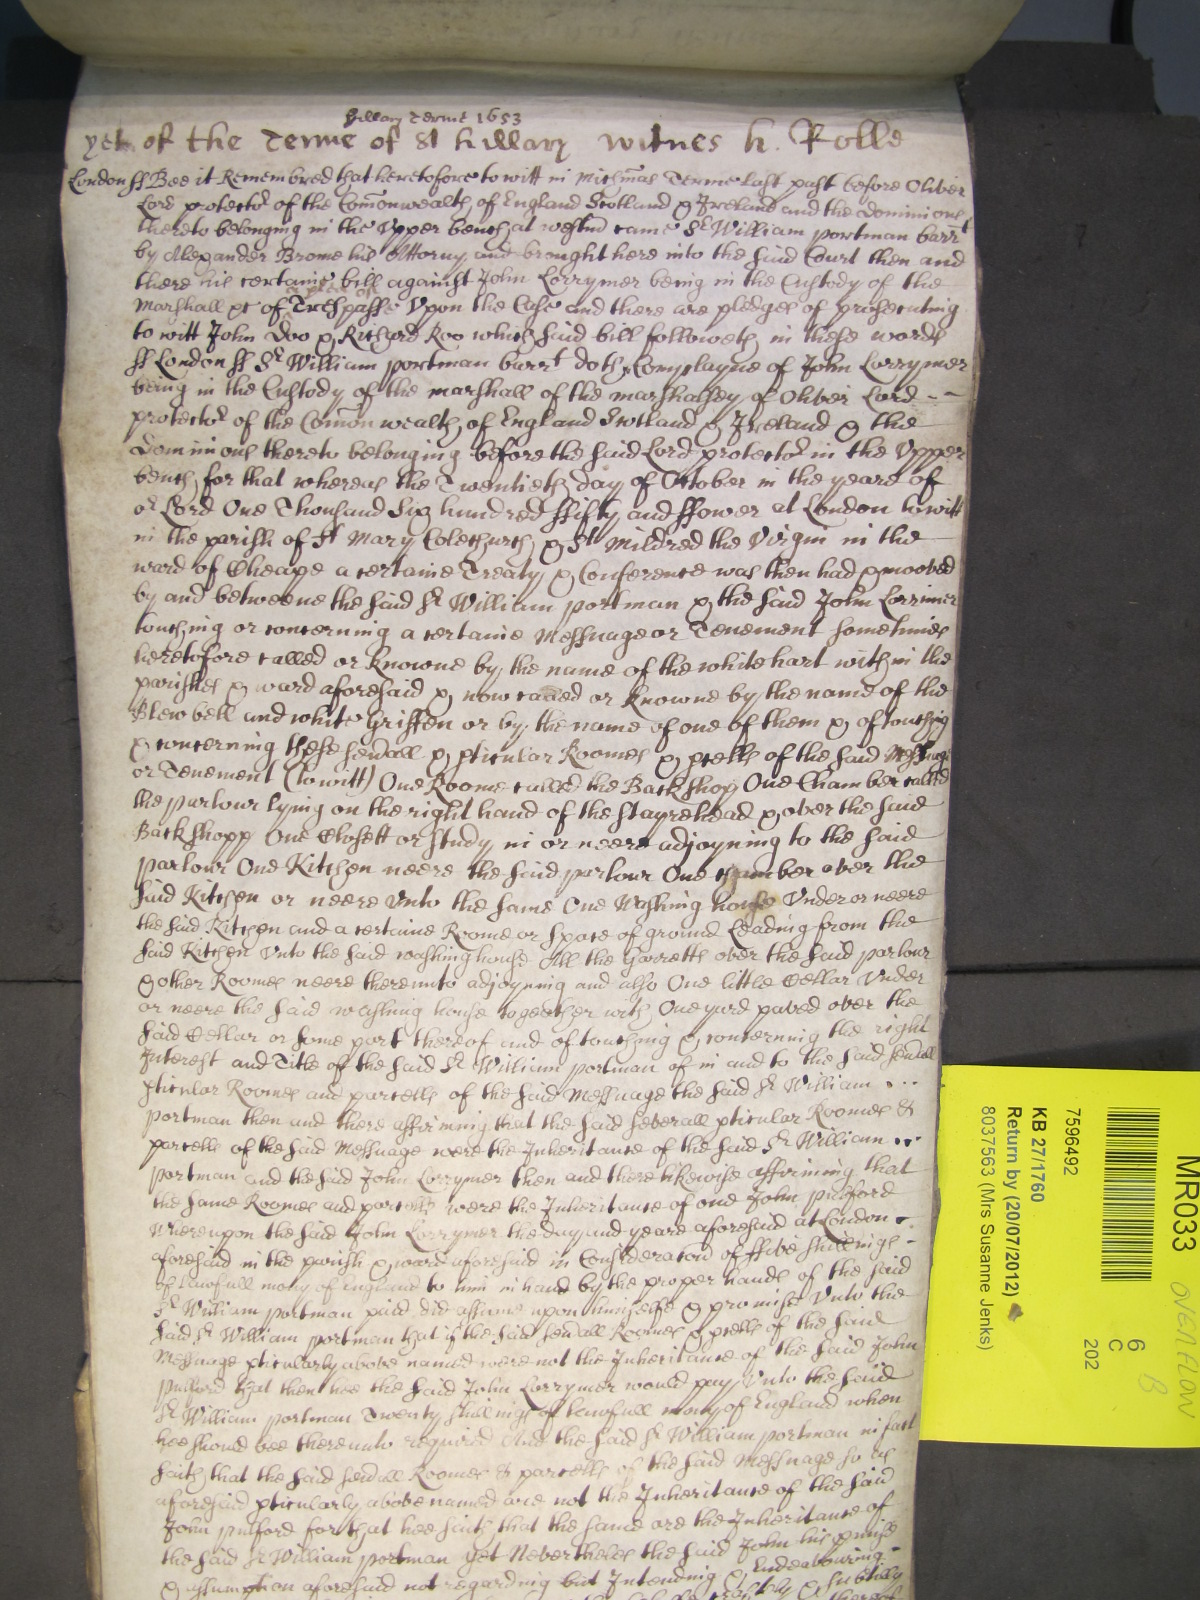 hillary Terme 1653
yet of the Terme of St hillary witnes h. Rolle
London ss Bee it Remembred that heretofore to witt in Michmas Terme last past before Oliver
Lord protector of the Comonwealth of England Scotland & Ireland and the dominions
thereto belonging in the Upper bench at westmr came Sr William portman barrt
by Alexander Brome his Attorny and brought here into the said Court then and
there his certaine bill against John Lorrymer being in the Custody of the
Marshall &c of Trespasse Upon the Case and there are pledges of prosecuting
to witt John Doo & Richard Roo which said bill followeth in these words
ss London ss Sr William portman barrt doth Complayne of John Lorrymer
being in the Custody of the marshall of the marshalsey of Oliver Lord --
protector of the Comon wealth of England Scotland & Ireland & the
Dominions thereto belonging before the said Lord protector in the Upper
bench for that whereas the Twentieth day of October in the yeare of
or Lord One Thousand Six hundred ffifty and ffower at London to witt
in the parish of St Mary Colechurch & St Mildred the Virgin in the
ward of Cheape a certaine Treaty & Conference was then had & mooved
by and betweene the said Sr William portman & the said John Lorrimer
touching or concerning a certaine Messuage or Tenement sometimes
heretofore called or knowne by the name of the white hart within the
parishes & ward aforesaid & now called or knowne by the name of the
Blew bell and white Griffen or by the name of one of them & of touching
& concerning these sevall & pticular Roomes & pcells of the said Messuage
or Tenement (to witt) One Roome called the Back shop One Chamber called
the parlour lying on the right hand of the stayrehead & over the said
Back shopp One Closett or study in or neere adjoyning to the said
parlour One Kitchen neere the said parlour One chamber over the
said Kitchen or neere Unto the same One Washing house Under or neere
the said Kitchen and a certaine Roome or space of ground Leading from the
said Kitchen Unto the said washing house All the Garretts over the said parlour
& other Roomes neere thereunto adjoyning and also One little Cellar Under
or neere the said washing house together with One yard paved over the
said Cellar or some part thereof and of touching & concerning the right
Interest and Title of the said Sr William portman of in and to the said sevall
pticular Roomes and parcells of the said Messuage the said Sr William ...
portman then and there affirming that the said severall pticular Roomes &
parcells of the said Messuage were the Inheritance of the said Sr William ..
portman and the said John Lorrymer then and there likewise affirming that
the same Roomes and parcells were the Inheritance of one John pulford
Whereupon the said John Lorrymer the day and yeare aforesaid at London
aforesaid in the parish & ward aforesaid in Consideracon of ffive shillings -
of lawfull mony of England to him in hand by the proper hands of the said
Sr William portman paid did assume upon himselfe & promise Unto the
said Sr William portman that if the said sevall Roomes & pcells of the said
Messuage pticularly above named were not the Inheritance of the said John
pulford that then hee the said John Lorrymer would pay Unto the said
Sr William portman Twenty shillings of lawfull mony of England when
hee should bee thereunto required And the said Sr William portman in fact
saith that the said sevall Roomes & parcells of the said Messuage so as
aforesaid pticularly above named are not the Inheritance of the said
John pulford for that hee saith that the same are the Inheritance of
the said Sr William portman yet Neverthelesse the said John his pmise
& assumption aforesaid not regarding but Intending & Endeavouring
& subtilly
MR033
OVERFLOW
B
6
C
202
7596492
KB 27/1760
Return by (20/07/2012)
8037563 (Mrs Susanne Jenks)